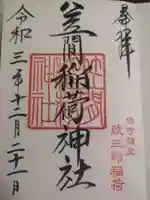 奉拝
紋三郎稲荷
笠間稲荷神社
令和三年十二月二十一日